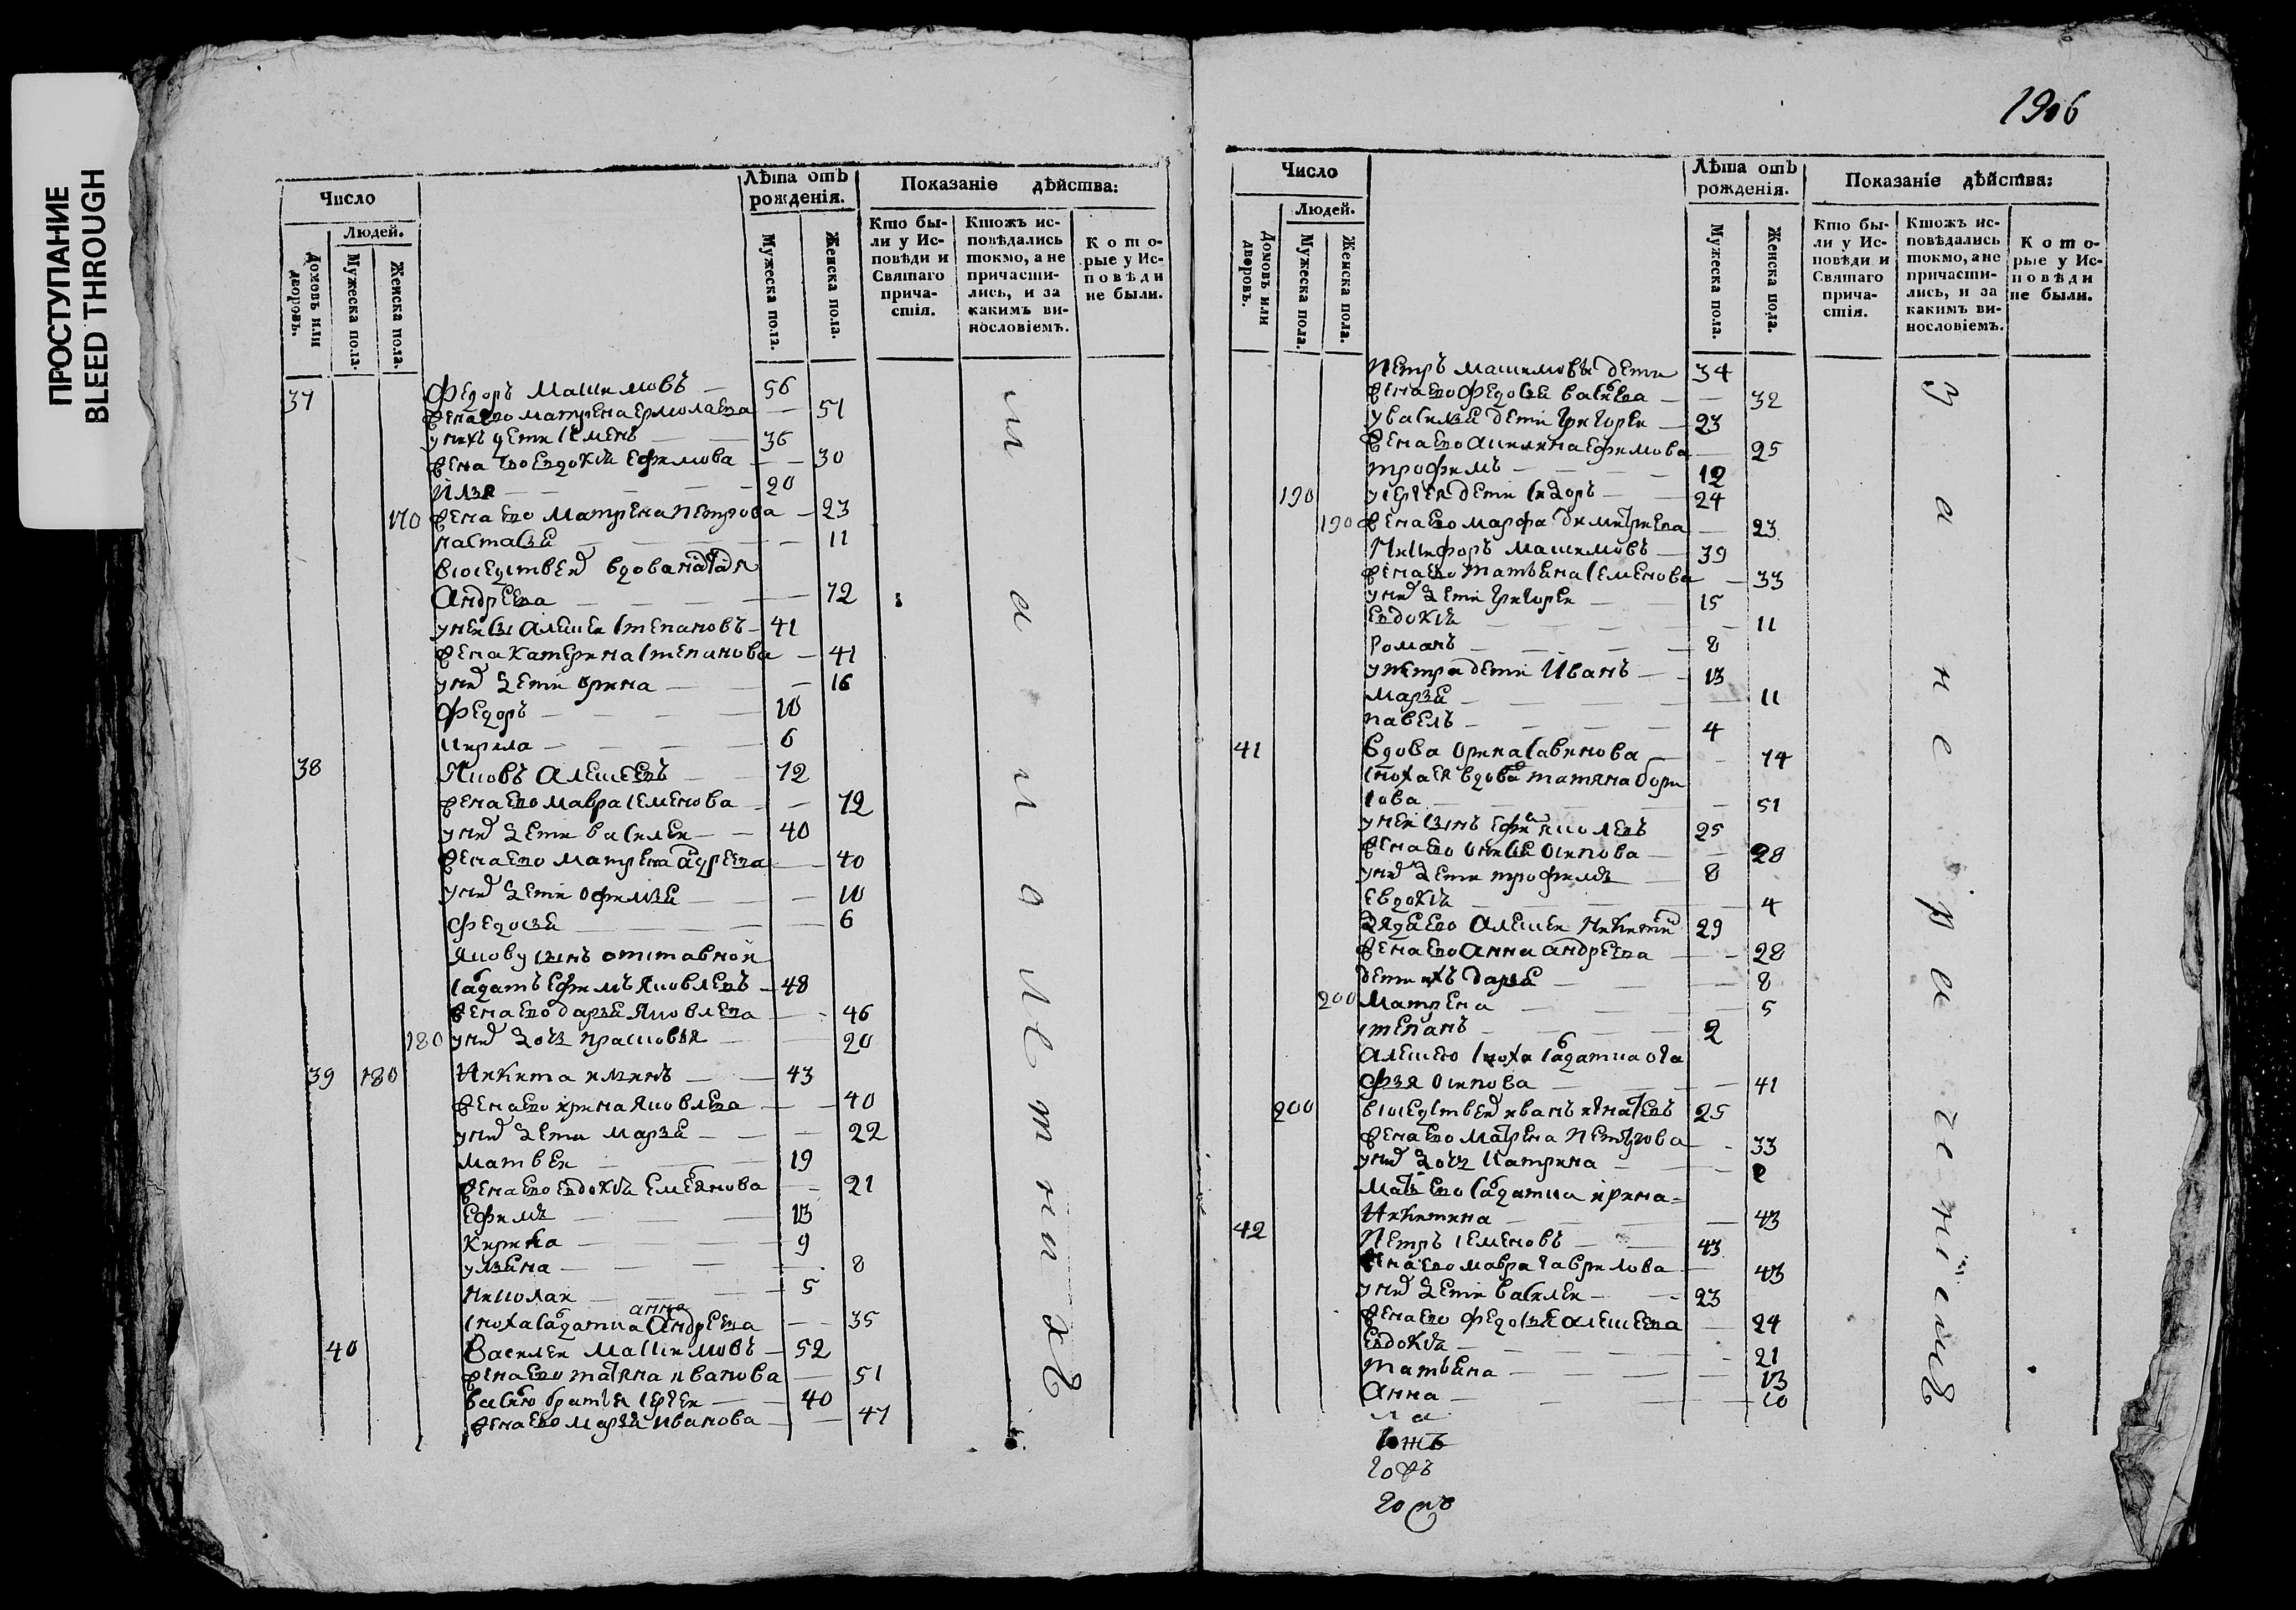 ПРОСТУПАНИЕ
BLEED THROUGH
Число
Людей.
Домовъ или дворовъ.
Мужеска пола.
Женска пола.
Лѣта отъ рожденія.
Мужеска пола.
Женска пола.
Показаніе дѣйства:
Кто бы-
ли у Ис-
повѣди и
Святаго
прича-
стія.
Ктожъ ис-
повѣдались
токмо, а не
причасти-
лись, и за
какимъ ви-
нословіемъ.
Кото-
рые у Ис-
повѣди
не были.
37 Федоръ Мацимовъ 56
жена ево матрена ермолаева 51
у них дети семенъ 36
жена ево евдокия ефимова 30
илья 20
170 жена ево матрена петрова 23
настасья 11
в соседствеи вдова
андреева 72
у неи сын алецеи степановъ 41
жена катерина степанова 41
у них дети орина 16
федоръ 10
кирила 6
38 Яковъ алецеевъ 72
жена ево мавра семенова 72
у них дети василеи 40
жена ево матрена адреева 40
у них дети офимья 10
федосья 6
якову сынъ отставной
садатъ ефимъ яковлевъ 48
жена ево дарья яковлева 46
180 у них дочь прасковья 20
39 180 никита ильинъ 43
жена ево ирина яковлева 40
у них дети марья 22
матвеи 19
жена ево евдокия емельянова 21
ефимъ 13
9
ульяна 8
николаи 5
сноха садатка анна андреева 35
40 Василеи Мацимовъ 52
жена ево татяна иванова 51
василью братья сергеи 40
жена ево марья иванова 47
т а к о л е т н и х ъ
1906
Число
Людей.
Домовъ или дворовъ.
Мужеска пола.
Женска пола.
Лѣта отъ рожденія.
Мужеска пола.
Женска пола.
Показаніе дѣйства:
Кто бы-
ли у Ис-
повѣди и
Святаго
прича-
стія.
Ктожъ ис-
повѣдались
токмо, а не
причасти-
лись, и за
какимъ ви-
нословіемъ.
Кото-
рые у Ис-
повѣди
не были.
петръ мацимовы дети 34
жена ево федосья васильева 32
у василья дети григореи 23
жена ево акилина ефимова 25
трофимъ 12
190 у сергея дети сидоръ 24
190 жена ево марфа димитреева 23
никифоръ мацимовъ 39
жена ево татьяна семенова 33
у них дети григореи 15
евдокия 11
романъ 8
у петра дети иванъ 13
марья 11
павелъ 4
41 вдова орина савинова 74
сноха ея вдова татяна бори
сова 51
у неи сынъ яковлевъ 25
жена ево осипова 28
у них дети трофимъ 8
евдокия 4
дядя ево алецеи никитин 29
жена ево анна андреева 28
дети ихъ дарья 8
200 матрена 5
степанъ 2
алецею сноха садатка ога
фья осипова 41
200 в соседствеи иванъ игнатевъ 25
жена ево матрена петрова 33
у них дочь катрина 2
мать ево садатка ирина
никитина 43
42 петръ семеновъ 43
жена ево мавра гаврилова 43
у них дети василеи 23
жена ево федосья алецеева 24
евдокия 21
татьяна 13
анна 10
з а н е р а ч е н і и м ъ